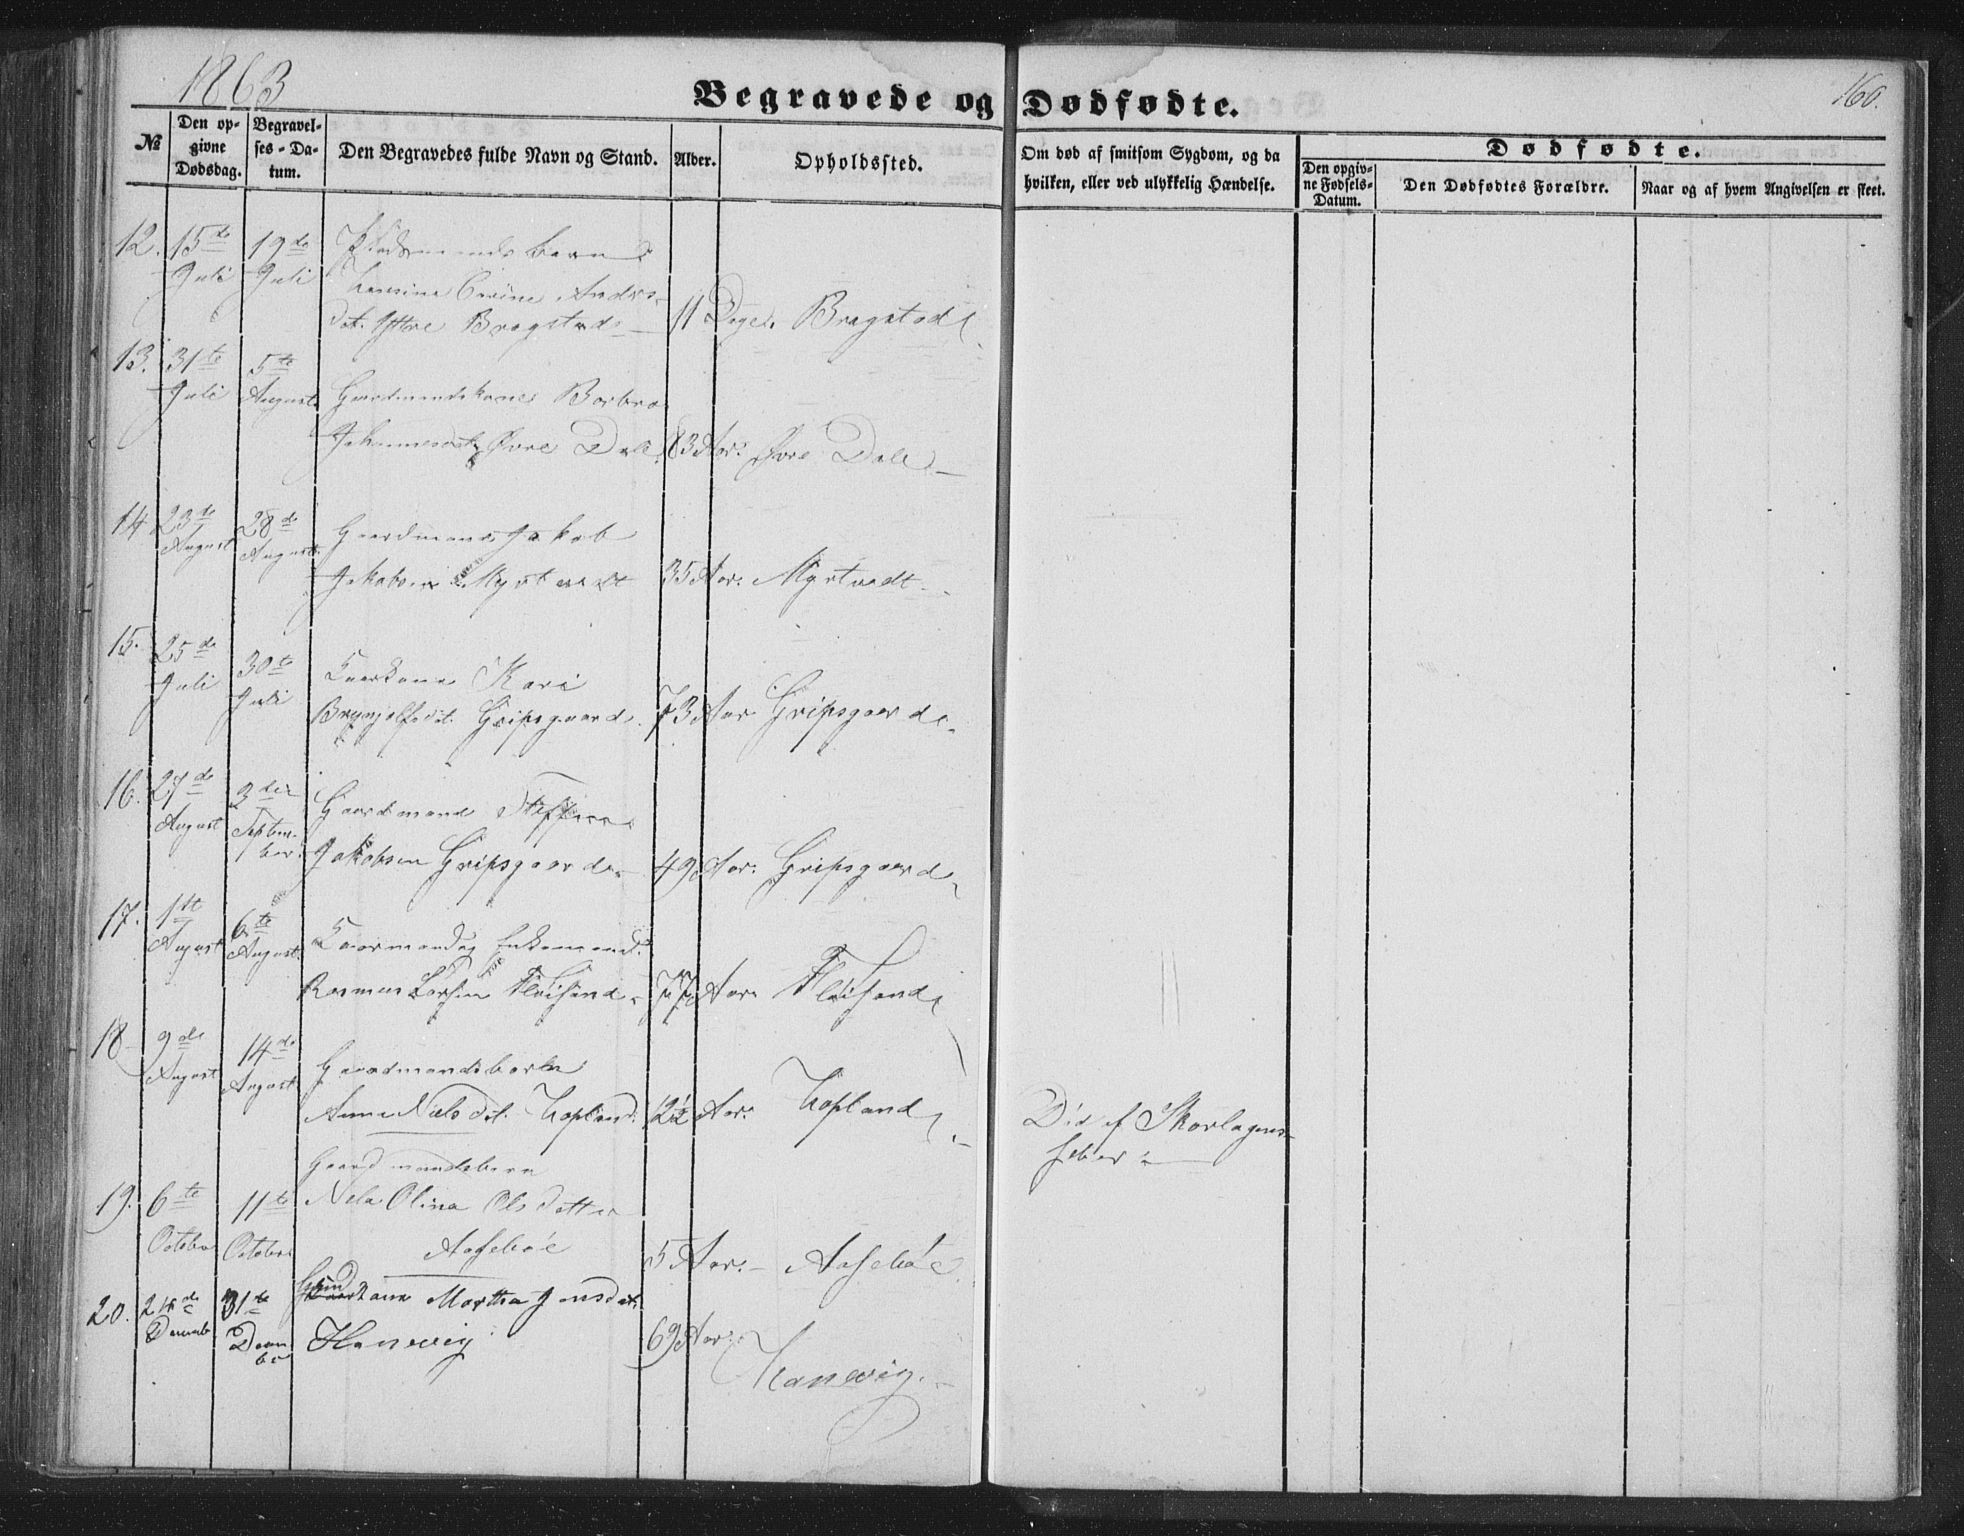 1863
Begravede og Dødfødte.
160.
№
Den opgivne Dødsdag.
Begravelses-Datum.
Den Begravedes fulde Navn og Stand.
Alder.
Opholdssted.
Om død af smitsom Sygdom, og da hvilken, eller ved ulykkelig Hændelse.
Dødfødte.
Den opgivne Fødsels-Datum.
Den Dødfødtes Forældre.
Naar og af hvem Angivelsen er skeet.
12. 15de Juli 19de Juli
Andrs-
dat. Ytre Bragstad 11 Dage. Bragstad
13. 31te Juli 5te August Gaardmandskone Barbra
Johannesdt Øvre Dale 83 Aar. Øvre Dale
14 23de August 28de August Gaardmand Jakob
Jakobsen Myrtvedt 35 Aar. Myrtvedt
15. 25de Juli 30te Juli Kari
Brynjolfsdt. Gripsgaard 73 Aar Gripsgaard
16. 27de August 3die September Gaardmand Steffen
Jakobsen Gripsgaard 49 Aar. Gripsgaard
17. 1ste August 6te August Enkemand
Rasmus Fløisand 77 Aar Fløisand
18 9de August 14de August Gaardmandsbarn
Anna Nielsdt. Hopland 2½ Aar. Hopland Død af Skarlagens-
feber
Gaardmandsbarn
19. 6te October 11te October Nela Olina Olsdatter
Aasebøe 5 Aar. Aasebøe
20. 24de Decemb 31te December Martha Jensdat.
Hanevig 69 Aar. Hanevig.